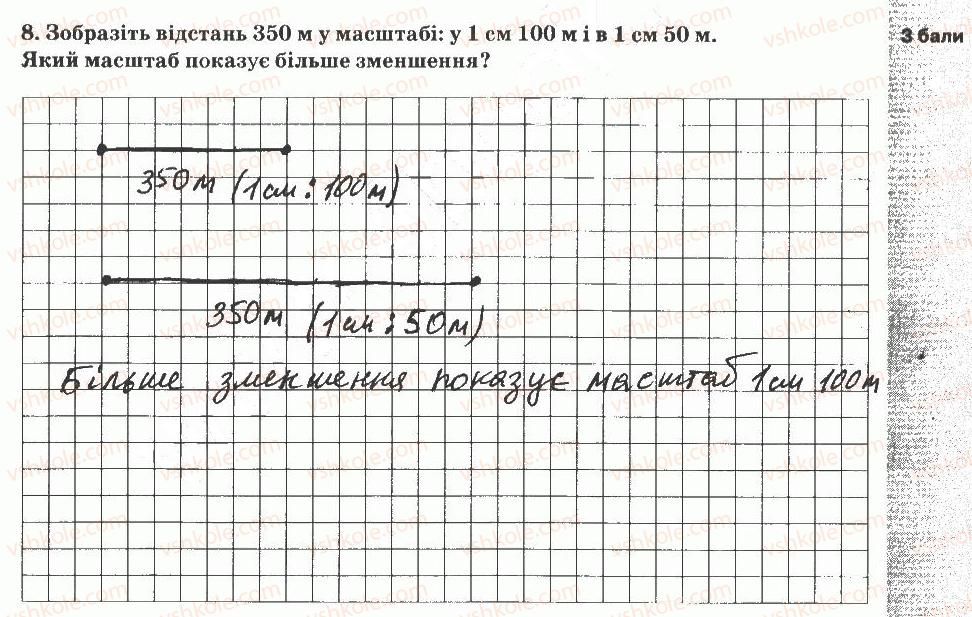 8. Зобразіть відстань 350 м у масштабі: у 1 см 100 м і в 1 см 50 м.
Який масштаб показує більше зменшення?
3 бали
350м (1см : 100м)
350м (1см : 50м)
Більше зменшення показує масштаб 1см 100м